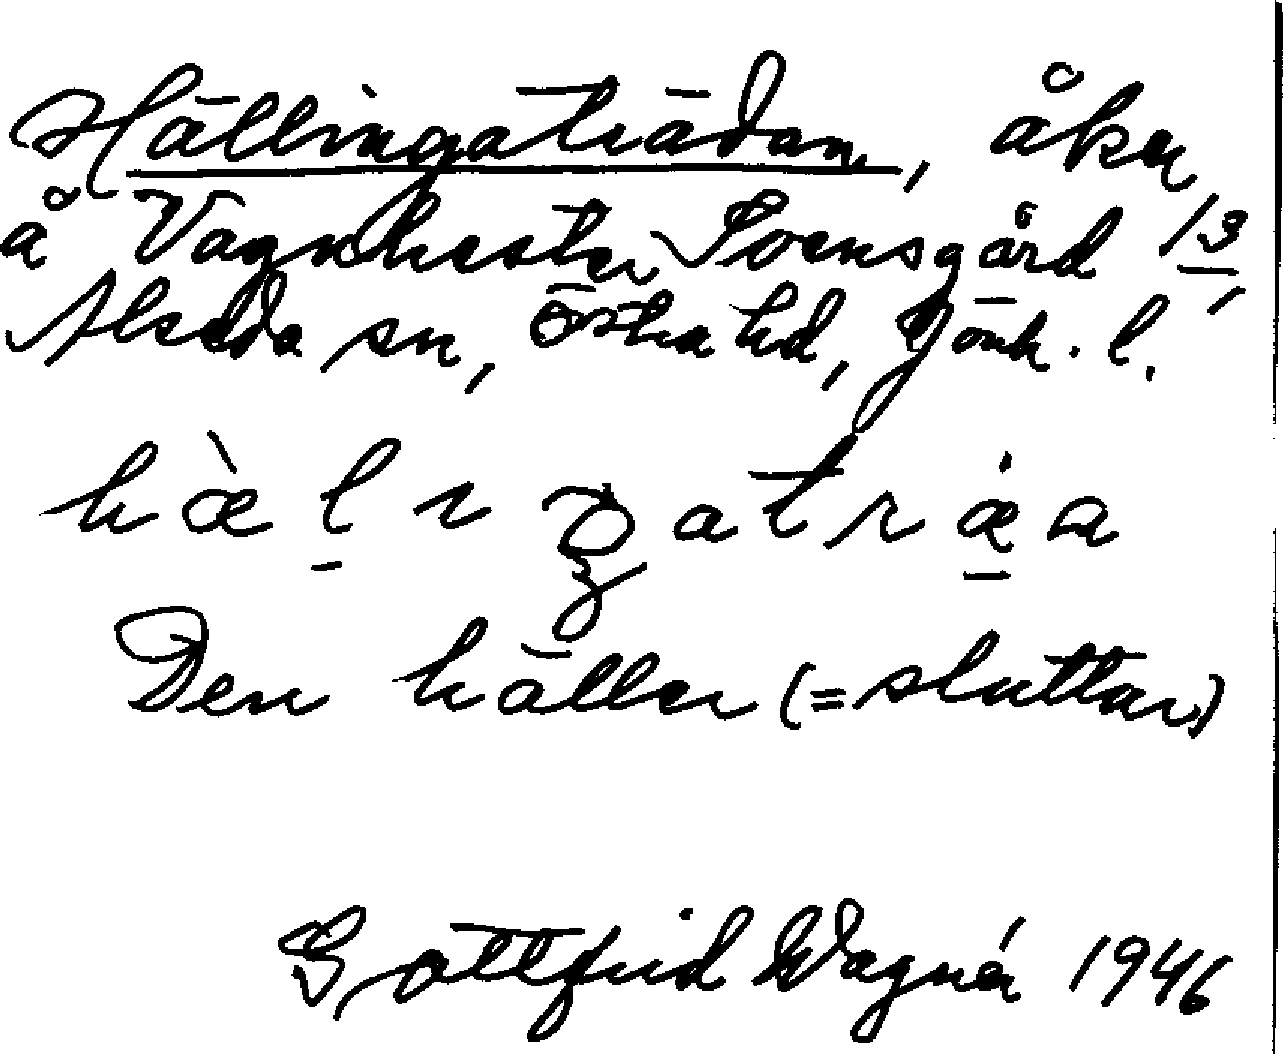 Hällingaträdan, åker,
å Vagnhester Svensgård 13,
Alseda sn, Östra hd, Jönk. l.
hæ̀l̠ıŋatrǽ̠a
Den häller (= sluttar)
Gottfrid Wagnér 1946